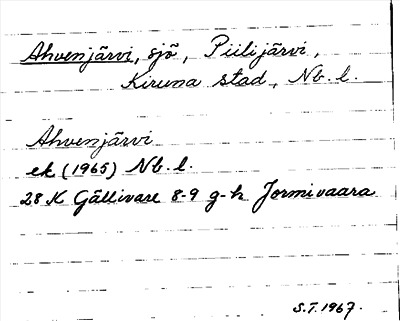 Ahvenjärvi, sjö, Piilijärvi,
Kiruna stad, Nb. l.
Ahvenjärvi
ek (1965) Nb. l.
28 K Gällivare 8-9 g-h Jormivaara
S.T. 1967.